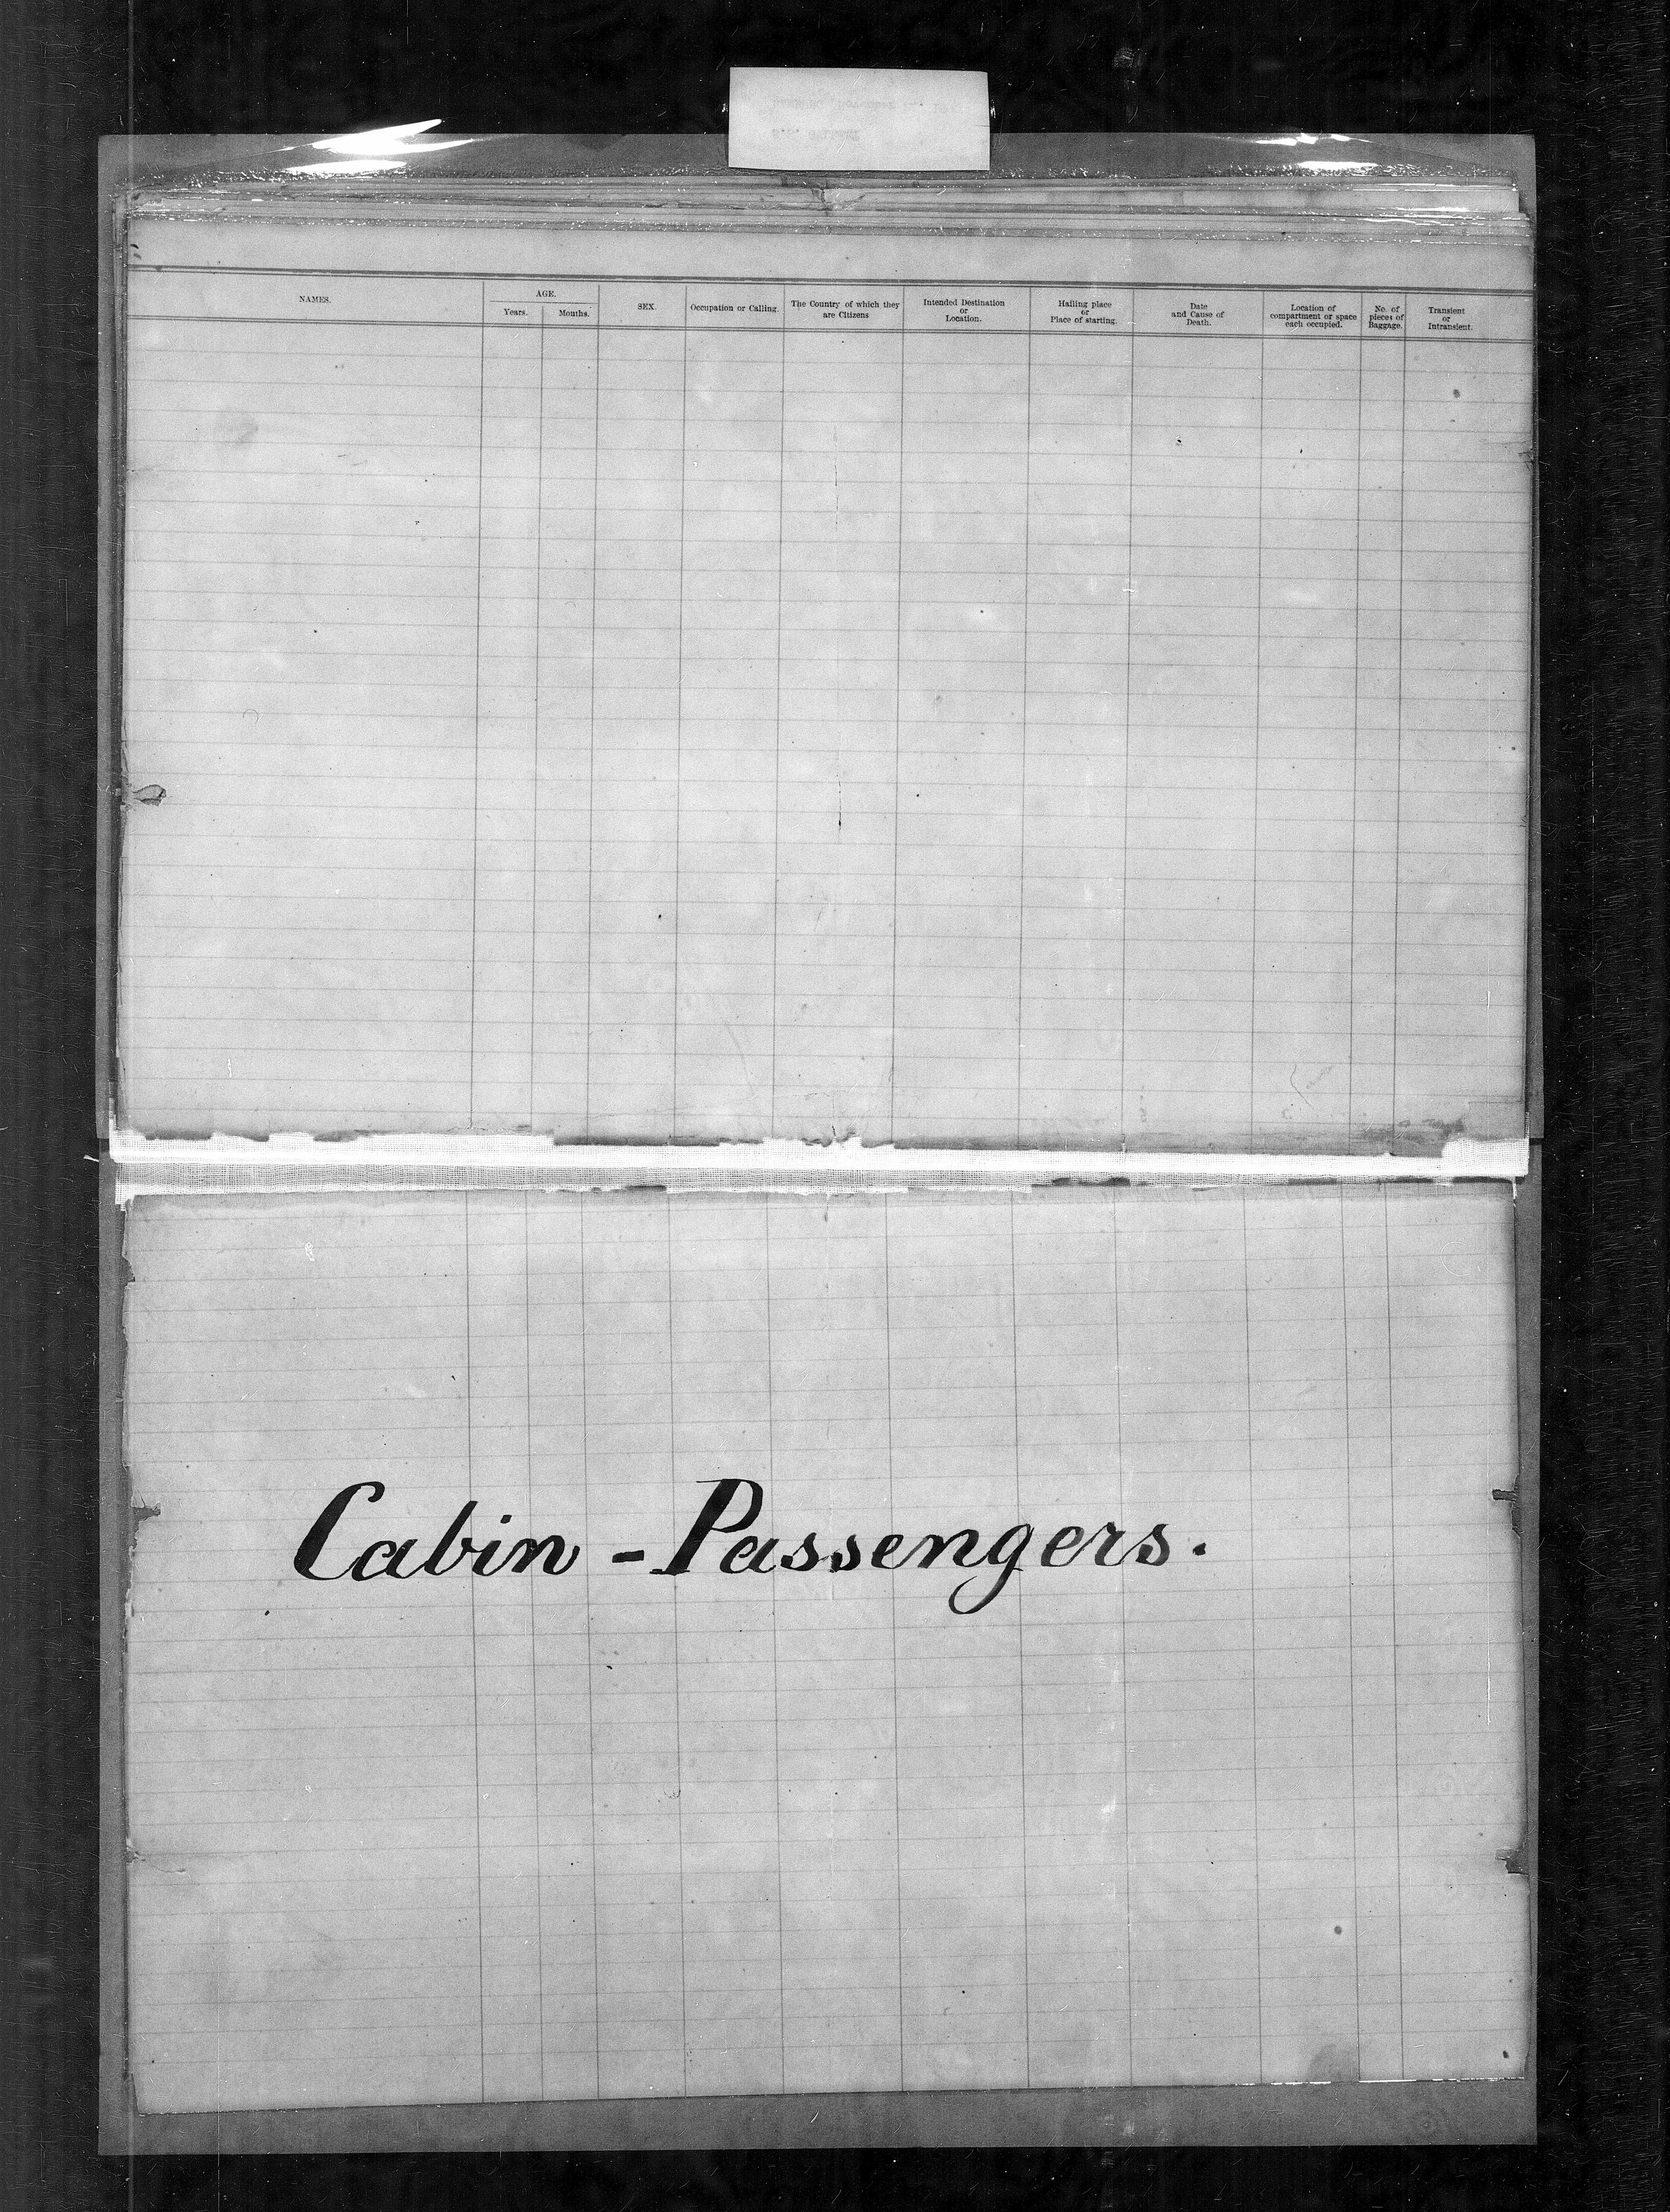 NAMES.
AGE.
Years.
Months.
SEX.
Occupation or Calling.
The Country of which they
are Citizens
Intended Destination
or
Location.
Hailing place
or
Place of starting.
Date
and Cause of
Death.
Location of
compartment or space
each occupied.
No. of
pieces of
Baggage.
Transient
or
Intransient.
Cabin - Passengers.